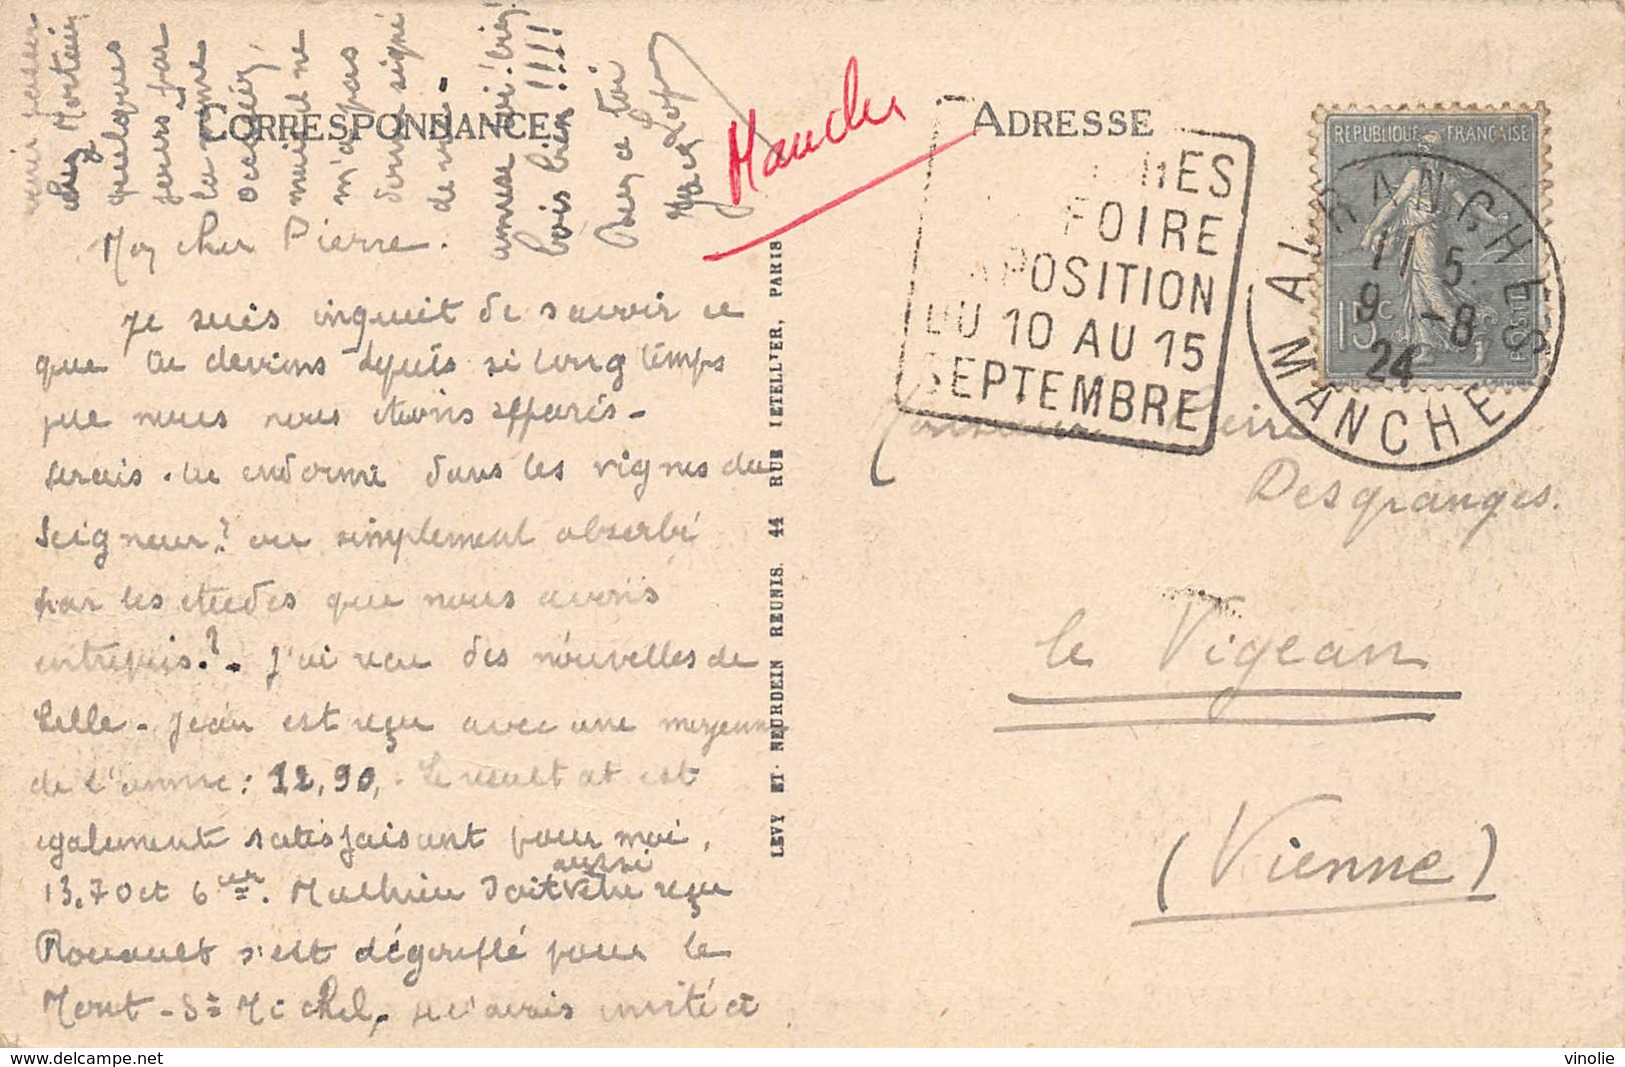 CORRESPONDANCE
ADRESSE
Manche
Mon cher Pierre.
Je suis inquiet de savoir ce
que tu deviens depuis si longtemps
que nous nous étions séparés -
serais-tu endormi dans les vignes du
Seigneur? ou simplement absorbé
par les études que nous avons
entrepris? - J'ai reçu des nouvelles de
Lelle - Jean est reçu avec une moyenne
de l'année: 12,90, - Le resultat est
egalement satisfaisant pour moi,
13,70 et 6 eme. Mathieu doit être reçu
aussi
Rouault s'est dégonflé pour le
Mont-St Michel, je l'avais invité à
venir passer
chez Mortain
quelques
jours par
la même
occasion,
mais il ne
m'a pas
donné signe
de vie.
amuse-toi bien
bois bien !!!!
Bien à toi
RÉPUBLIQUE FRANÇAISE
15c
POSTES
AVRANCHES
MANCHE
11 5
9 -8
24
HES
FOIRE
XPOSITION
DU 10 AU 15
SEPTEMBRE
Monsieur Pierre
Desgranges.
le Vigean
(Vienne)
LEVY ET NEURDEIN REUNIS, 44 RUE LETELLIER, PARIS
vinolie
delcampe.net